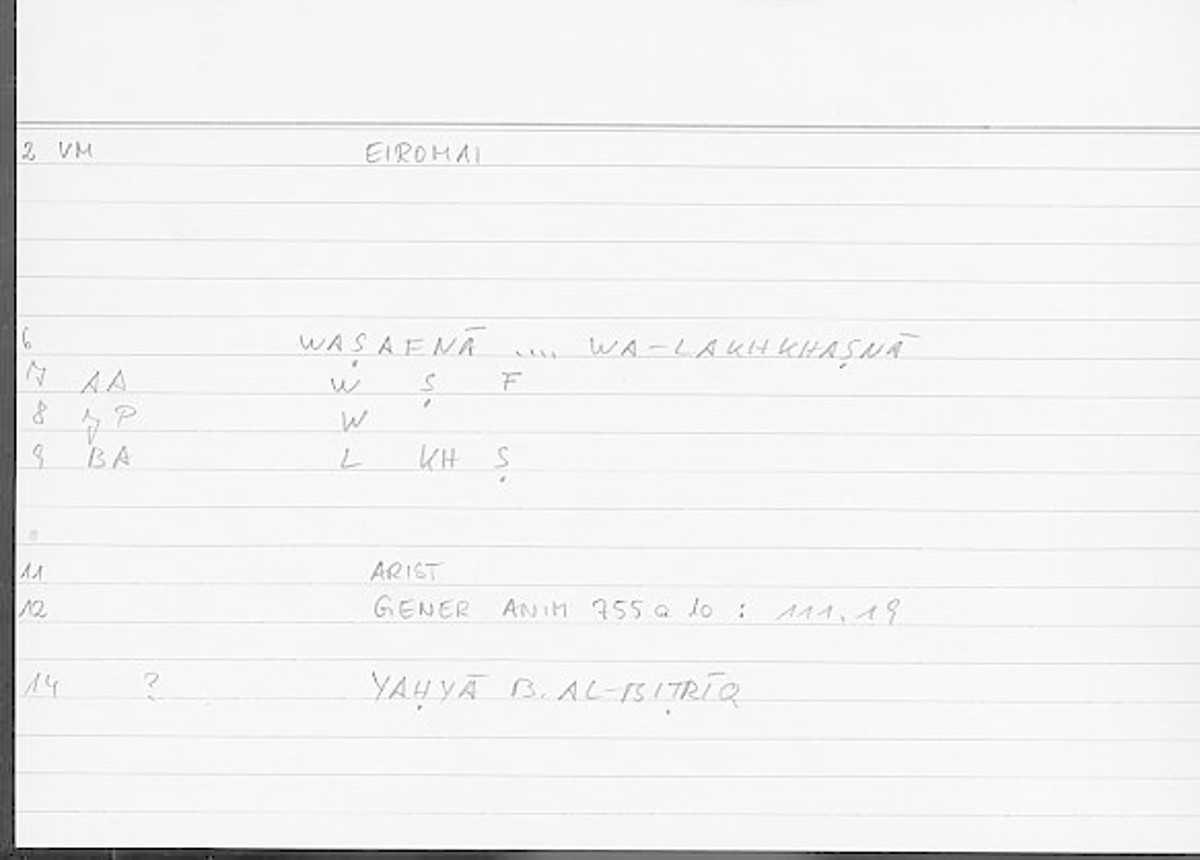 2 VM EIROMAI
6 WAṢAFNĀ .... WA-LAKHKHAṢNĀ
7 AA W Ṣ F
8 W
9 BA L KH Ṣ
11 ARIST
12 GENER ANIM 755 a 10 : 111.19
14 ? YAḤYĀ B. AL-BIṬRĪQ